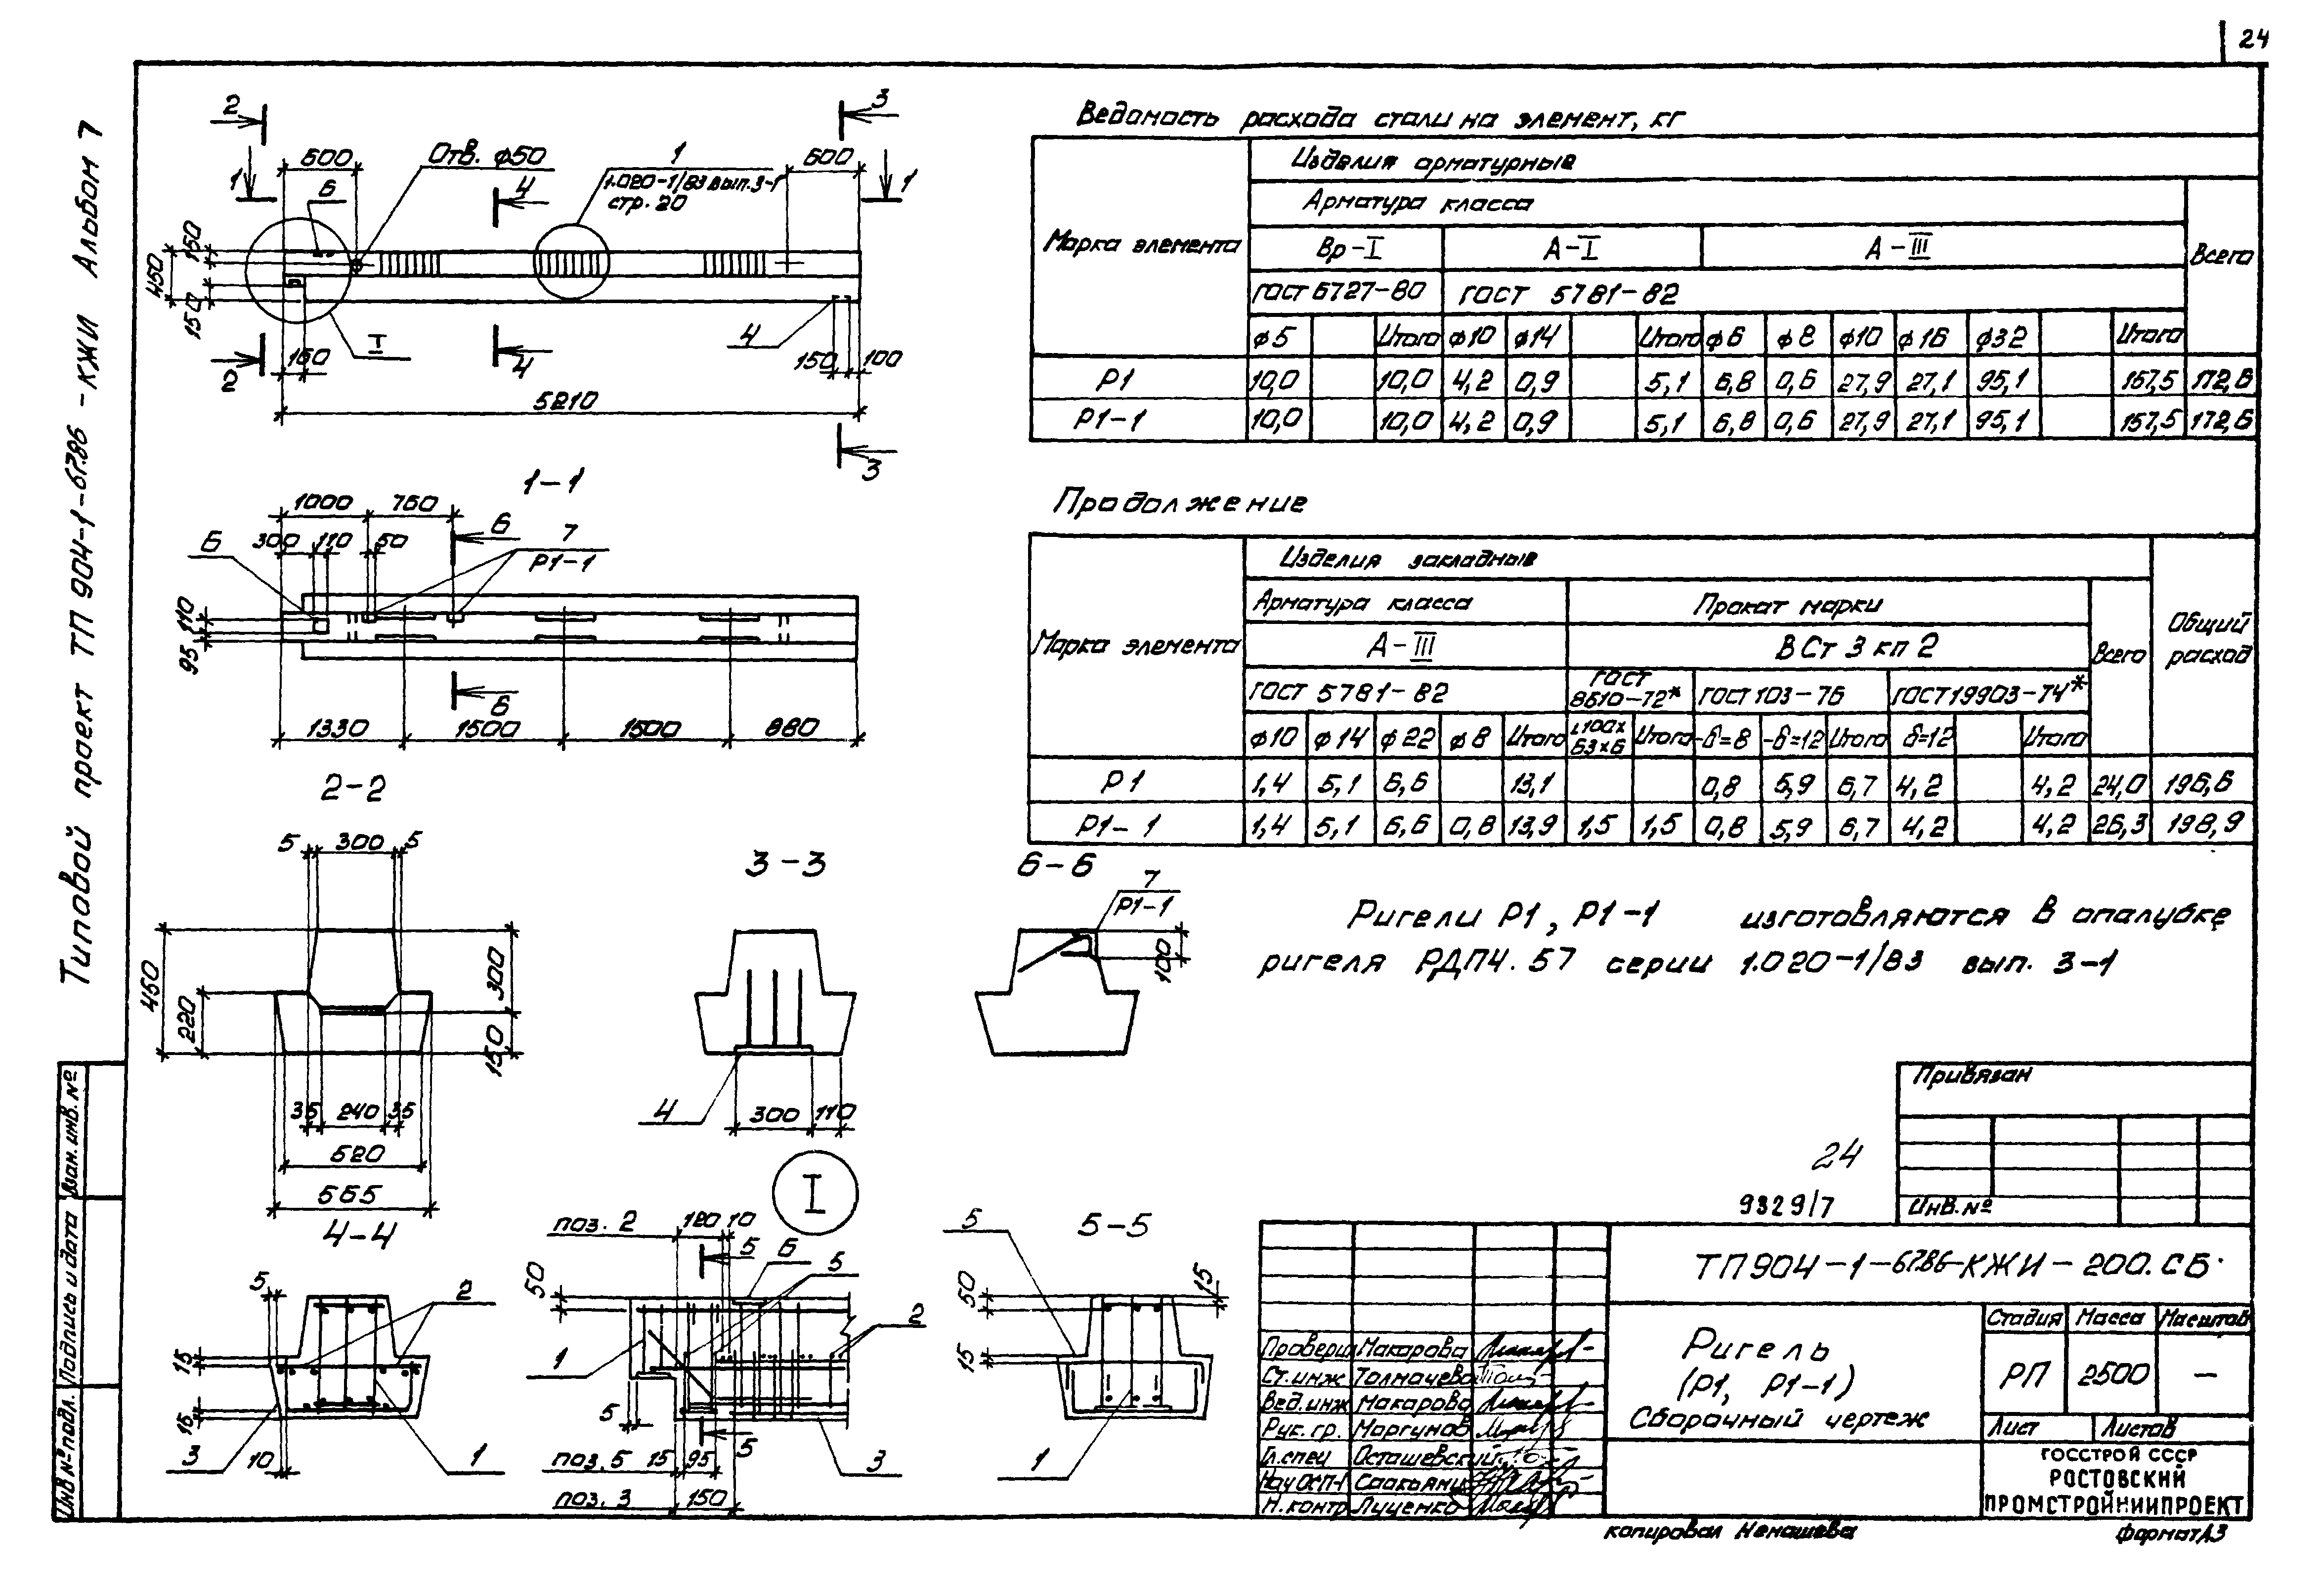 24
Типовой проект ТП 904-1-67.86 -КЖИ Альбом 7
2
3
600
Отв. ф50
1
600
1.020-1/83 вып.3-1
стр. 20
1
6
4
1
150
450
150
I
4
2
160
4
150
100
5210
3
1-1
1000
760
6
7
Р1-1
6
300
110
50
110
95
6
1330
1500
1500
880
2-2
5
300
5
450
220
300
150
35
240
35
520
565
3-3
4
300
110
6-6
7
Р1-1
100
4-4
5
2
15
15
3
10
1
I
поз. 2
120
10
5
6
5
50
2
1
5
поз. 5
15
95
5
3
поз. 3
150
5-5
5
50
15
15
1
Ведомость расхода стали на элемент, кг
Марка элемента
Изделия арматурные
Арматура класса
Всего
Вр-I
А-I
А-III
ГОСТ 6727-80
ГОСТ 5781-82
ф5 Итого ф10 ф14 Итого ф6 ф8 ф10 ф16 ф32 Итого
Р1 10,0 10,0 4,2 0,9 5,1 6,8 0,6 27,9 27,1 95,1 157,5 172,6
Р1-1 10,0 10,0 4,2 0,9 5,1 6,8 0,6 27,9 27,1 95,1 157,5 172,6
Продолжение
Марка элемента
Изделия закладные
Общий расход
Арматура класса
Прокат марки
Всего
А-III
ВСт 3 кп 2
ГОСТ 5781-82
ГОСТ 8510-72*
ГОСТ 103-76
ГОСТ 19903-74*
ф10 ф14 ф22 ф8 Итого L100х63х6 Итого -δ=8 -δ=12 Итого δ=12 Итого
Р1 1,4 5,1 6,6 13,1 0,8 5,9 6,7 4,2 4,2 24,0 196,6
Р1-1 1,4 5,1 6,6 0,8 13,9 1,5 1,5 0,8 5,9 6,7 4,2 4,2 26,3 198,9
Ригели Р1, Р1-1 изготовляются в опалубке
ригеля РДП4.57 серии 1.020-1/83 вып. 3-1
Привязан
Инв.№
24
9329/7
ТП904-1-67.86-КЖИ-200.СБ
Ригель
(Р1, Р1-1)
Сборочный чертеж
Стадия Масса Масштаб
РП 2500 —
Лист Листов
ГОССТРОЙ СССР
РОСТОВСКИЙ
ПРОМСТРОЙНИИПРОЕКТ
Проверил Макарова
Ст.инж Толмачева
Вед.инж Макарова
Рук. гр. Моргунов
Гл.спец Осташевский
Нач ОСП-1 Саакьянц
Н.контр Луценко
копировал Ненашева
формат А3
Взам. инв. №
Подпись и дата
Инв № подл.